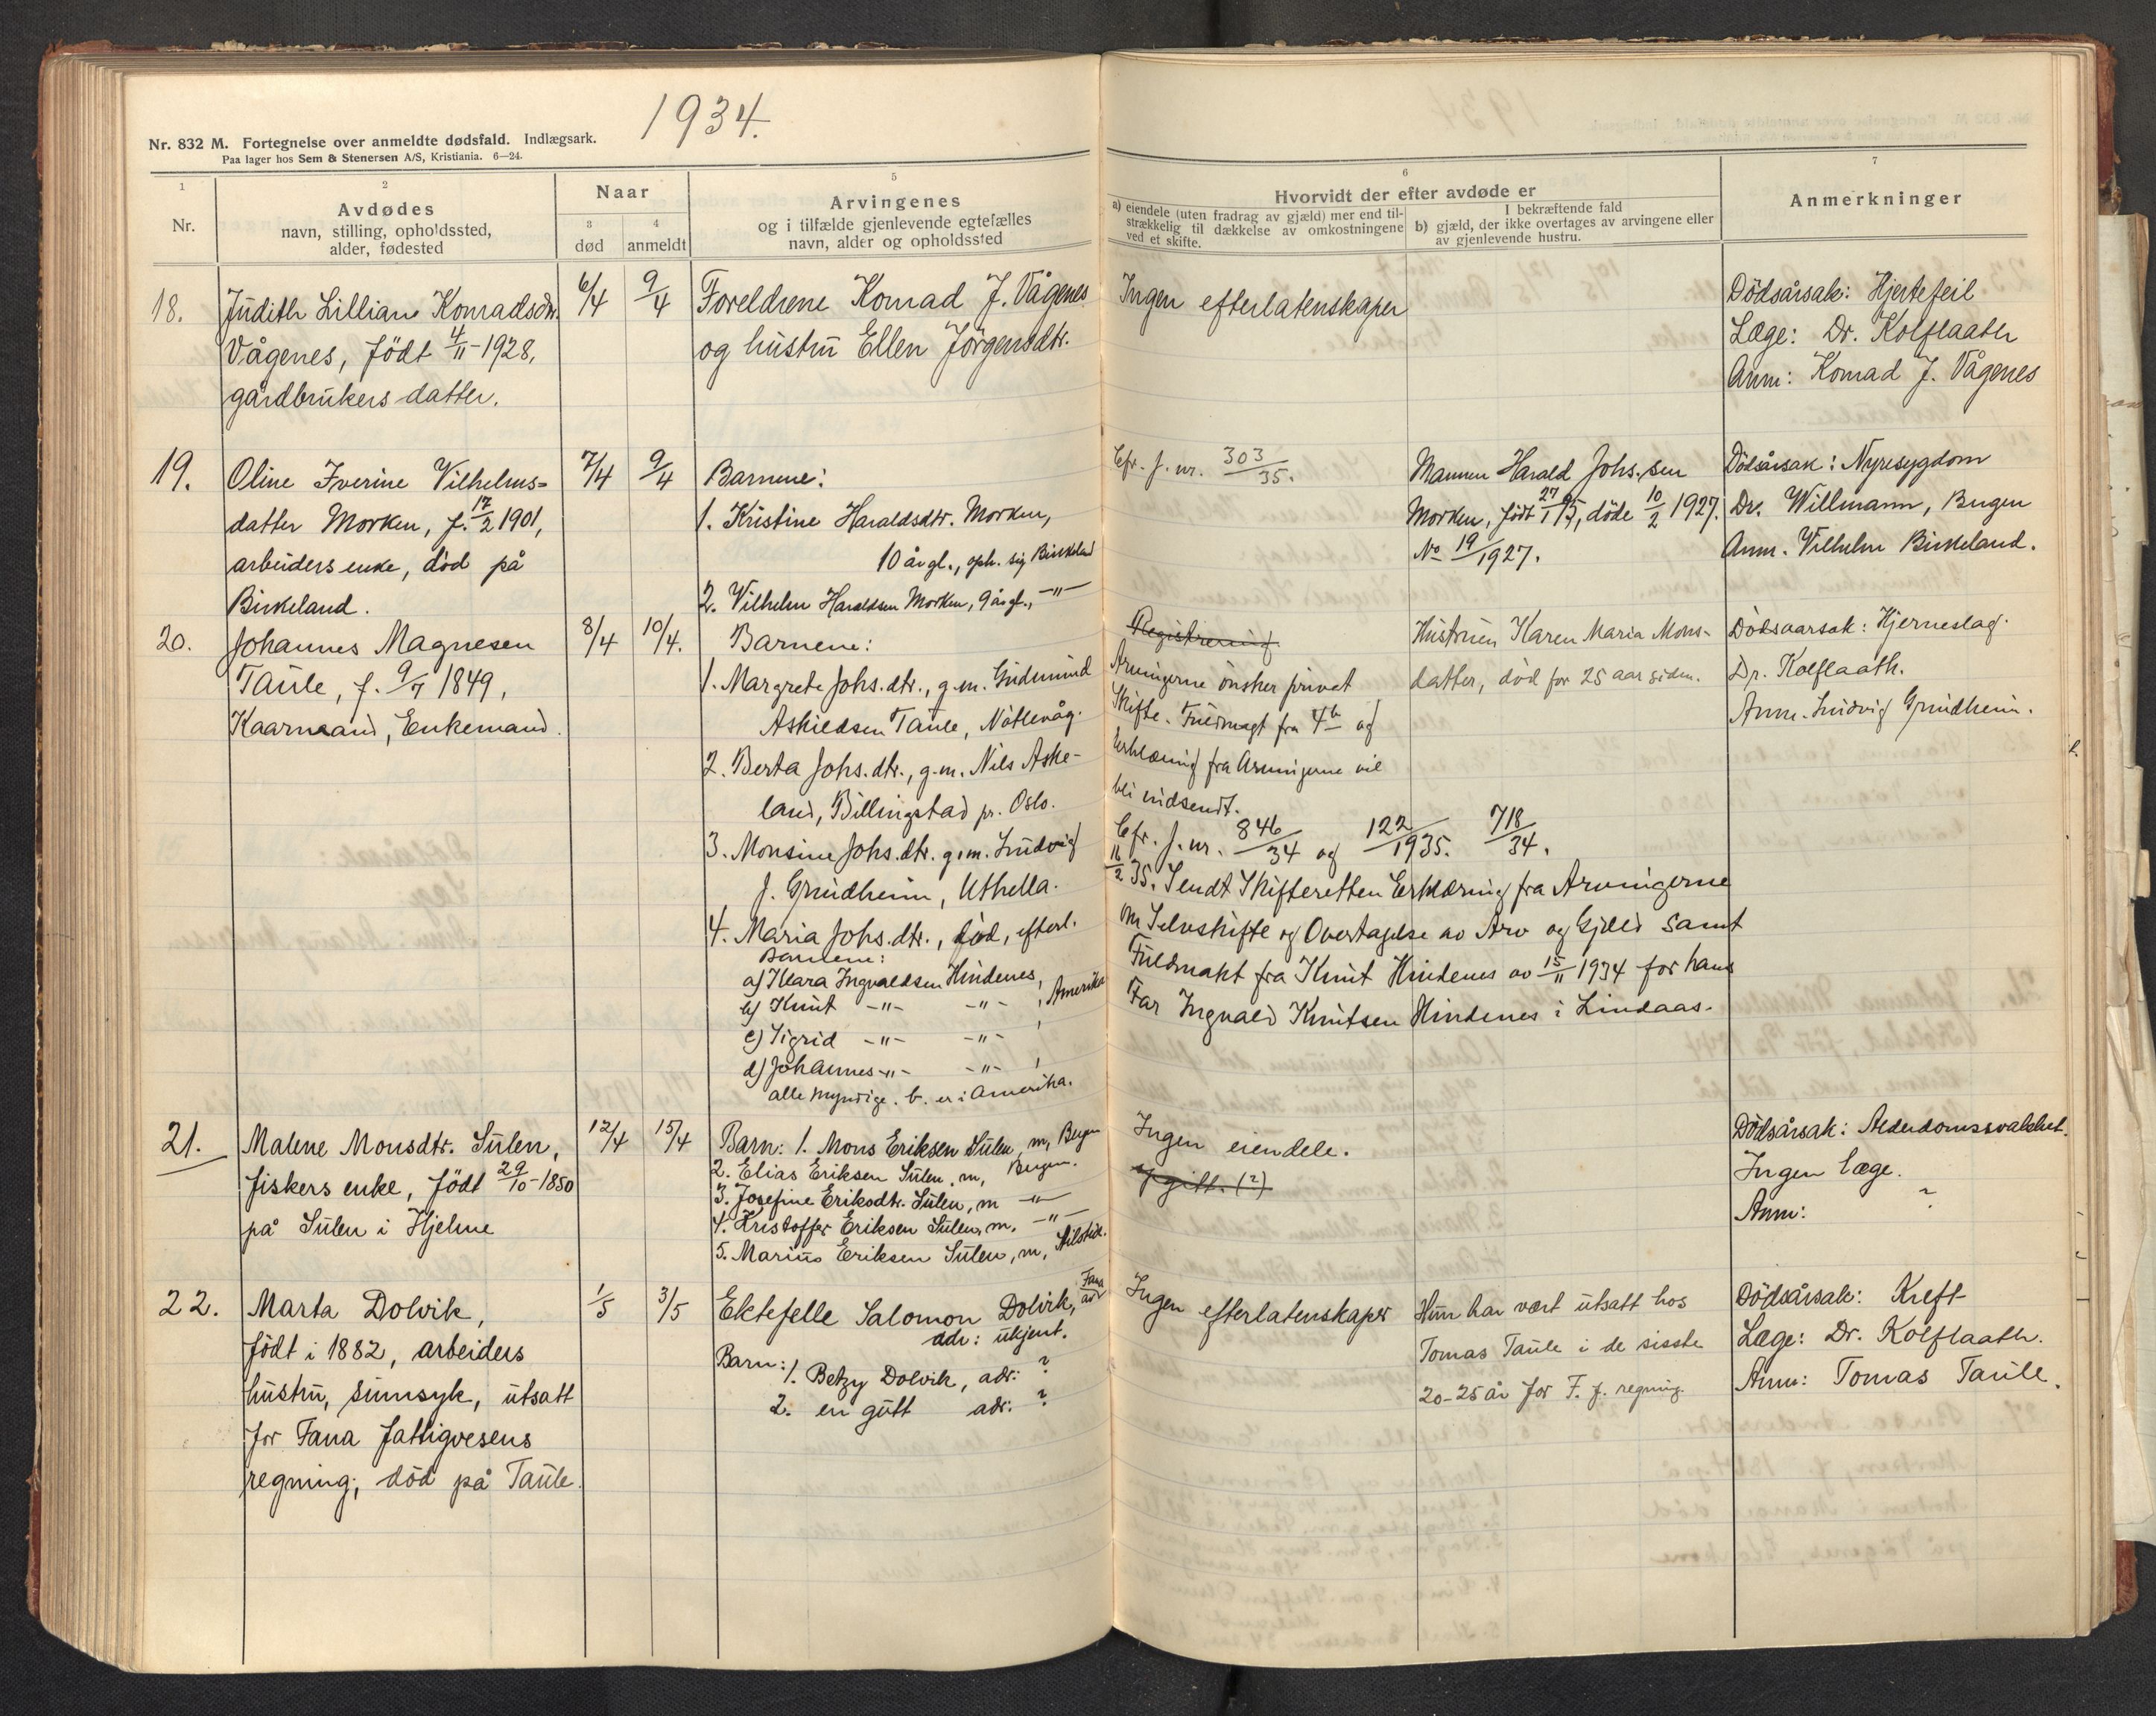 1934.
Nr. 832 M. Fortegnelse over anmeldte dødsfald. Indlægsark.
Paa lager hos Sem & Stenersen A/S, Kristiania. 6—24.
1
Nr.
2
Avdødes
navn, stilling, opholdssted,
alder, fødested
Naar
3
død
4
anmeldt
5
Arvingenes
og i tilfælde gjenlevende egtefælles
navn, alder og opholdssted
6
Hvorvidt der efter avdøde er
a) eiendele (uten fradrag av gjæld) mer end til-
strækkelig til dækkelse av omkostningene
ved et skifte.
I bekræftende fald
b) gjæld, der ikke overtages av arvingene eller
av gjenlevende hustru.
7
Anmerkninger
18.
Judith Lilliane Konradsdtr.
Vågenes, født 4/11-1928,
gårdbrukers datter.
6/4
9/4
Foreldrene Konrad J. Vågenes
og hustru Ellen Jörgensdtr.
Ingen efterlatenskaper
Dödsårsak: Hjertefeil
Læge: Dr. Kolflaath
Anm: Konrad J. Vågenes
19.
Oline Iverine Vilhelms-
datter Morken, f. 17/2 1901,
arbeiders enke, død på
Birkeland.
7/4
9/4
Barnene:
1. Kristine Haraldsdtr. Morken,
10 år gl., oph. sig Birkeland
2. Vilhelm Haraldsen Morken, 9 år gl., -"-
Cfr. j. nr. 303/35.
Mannen Harald Johs.sen
Morken, født 27/1 95, døde 10/2 1927.
No 19/1927.
Dödsårsak: Nyresygdom
Dr. Willmann, Bergen
Anm. Vilhelm Birkeland.
20.
Johannes Magnesen
Taule, f. 9/7 1849,
Kaarmand, Enkemand.
8/4
10/4.
Barnene:
1. Margrete Johs.dtr., g.m. Gudmund
Askildsen Taule, Nöttevåg.
2. Berta Johs.dtr., g.m. Nils Aske-
land, Billingstad pr. Oslo.
3. Monsine Johs.dtr. g.m. Ludvig
J. Grundheim, Uthella.
4. Maria Johs.dtr., död, efterl.
Barnene:
a) Klara Ingvaldsen Hindenes,
b) Knut -"- -"- , Amerika
c) Sigrid -"- -"- ,
d) Johannes -"- -"- ,
alle myndige. b. er i Amerika.
Registrering
Arvingerne ønsker privat
Skifte. Fuldmagt fra 4b og
Erklæring fra Arvingerne vil
bli indsendt.
Cfr. j. nr. 846/34 og 122/1935. 718/34.
16/2 35. Sendt Skifteretten Erklæring fra Arvingerne
om Selvskifte og Overtagelse av Arv og Gjeld samt
Fuldmakt fra Knut Hindenes av 15/11 1934 for hans
Far Ingvald Knutsen Hindenes i Lindaas.
Hustruen Karen Maria Mons-
datter, död for 25 aar siden.
Dödsaarsak: Hjerneslag.
Dr. Kolflaath.
Anm. Ludvig Grundheim.
21.
Malene Monsdtr. Sulen,
fiskers enke, født 29/10-1850
på Sulen i Hjelme
12/4
15/4
Barn: 1. Mons Eriksen Sulen, m, Bergen
2. Elias Eriksen Sulen, m, Bergen.
3. Josefine Eriksdtr. Sulen, m -"-
4. Kristoffer Eriksen Sulen, m. -"-
5. Marius Eriksen Sulen, m,
Ingen eiendele.
Ugift. (?)
Dödsårsak: Alderdomssvakhet.
Ingen læge.
Anm: ?
22.
Marta Dolvik,
født i 1882, arbeiders
hustru, sinnsyk, utsatt
for Fana fattigvesens
regning; död på Taule.
1/5
3/5
Ektefelle Salomon Dolvik, Fana
adr: ukjent.
Barn: 1. Betzy Dolvik, adr: ?
2. en gutt adr. ?
Ingen efterlatenskaper
Hun har vært utsatt hos
Tomas Taule i de sisste
20-25 år for F. f. regning.
Dödsårsak: Kreft
Læge: Dr. Kolflaath.
Anm: Tomas Taule.